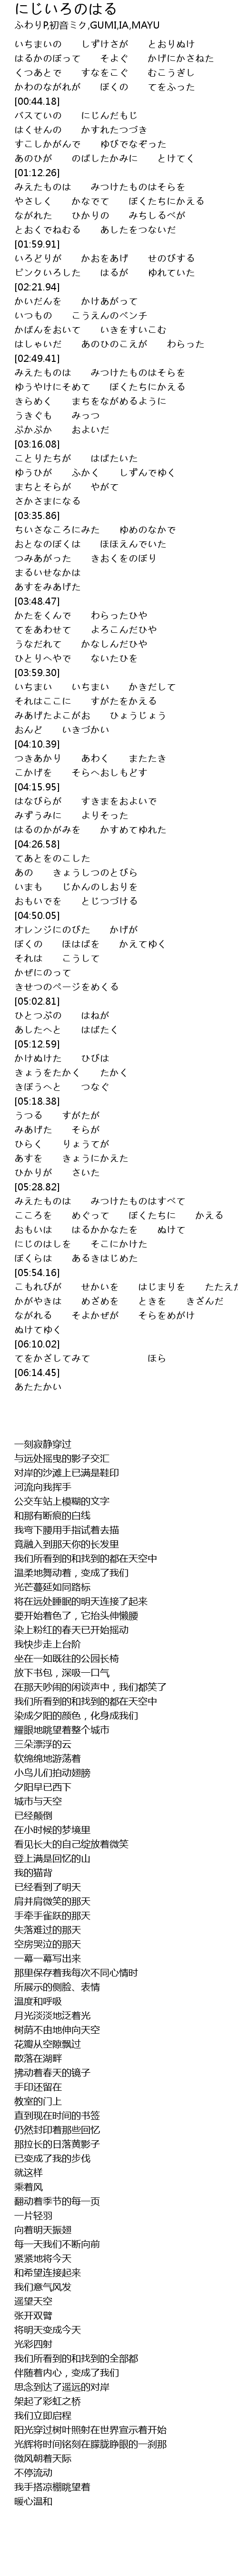 にじいろのはる
ふわりP,初音ミク,GUMI,IA,MAYU
いちまいの　　しずけさが　　とおりぬけ
はるかのぼって　　そよぐ　　かげにかさねた
くつあとで　　すなをこぐ　　むこうぎし
かわのながれが　　ぼくの　　てをふった
[00:44.18]
バスていの　　にじんだもじ
はくせんの　　かすれたつづき
すこしかがんで　　ゆびでなぞった
あのひが　　のばしたかみに　　とけてく
[01:12.26]
みえたものは　　みつけたものはそらを
やさしく　　かなでて　　ぼくたちにかえる
ながれた　　ひかりの　　みちしるべが
とおくでねむる　　あしたをつないだ
[01:59.91]
いろどりが　　かおをあげ　　せのびする
ピンクいろした　　はるが　　ゆれていた
[02:21.94]
かいだんを　　かけあがって
いつもの　　こうえんのベンチ
かばんをおいて　　いきをすいこむ
はしゃいだ　　あのひのこえが　　わらった
[02:49.41]
みえたものは　　みつけたものはそらを
ゆうやけにそめて　　ぼくたちにかえる
きらめく　　まちをながめるように
うきぐも　　みっつ
ぷかぷか　　およいだ
[03:16.08]
ことりたちが　　はばたいた
ゆうひが　　ふかく　　しずんでゆく
まちとそらが　　やがて
さかさまになる
[03:35.86]
ちいさなころにみた　　ゆめのなかで
おとなのぼくは　　ほほえんでいた
つみあがった　　きおくをのぼり
まるいせなかは
あすをみあげた
[03:48.47]
かたをくんで　　わらったひや
てをあわせて　　よろこんだひや
うなだれて　　かなしんだひや
ひとりへやで　　ないたひを
[03:59.30]
いちまい　　いちまい　　かきだして
それはここに　　すがたをかえる
みあげたよこがお　　ひょうじょう
おんど　　いきづかい
[04:10.39]
つきあかり　　あわく　　またたき
こかげを　　そらへおしもどす
[04:15.95]
はなびらが　　すきまをおよいで
みずうみに　　よりそった
はるのかがみを　　かすめてゆれた
[04:26.58]
てあとをのこした
あの　　きょうしつのとびら
いまも　　じかんのしおりを
おもいでを　　とじつづける
[04:50.05]
オレンジにのびた　　かげが
ぼくの　　ほはばを　　かえてゆく
それは　　こうして
かぜにのって
きせつのページをめくる
[05:02.81]
ひとつぶの　　はねが
あしたへと　　はばたく
[05:12.59]
かけぬけた　　ひびは
きょうをたかく　　たかく
きぼうへと　　つなぐ
[05:18.38]
うつる　　すがたが
みあげた　　そらが
ひらく　　りょうてが
あすを　　きょうにかえた
ひかりが　　さいた
[05:28.82]
みえたものは　　みつけたものはすべて
こころを　　めぐって　　ぼくたちに　　かえる
おもいは　　はるかかなたを　　ぬけて
にじのはしを　　そこにかけた
ぼくらは　　あるきはじめた
[05:54.16]
こもれびが　　せかいを　　はじまりを　　たたえた
かがやきは　　めざめを　　ときを　　きざんだ
ながれる　　そよかぜが　　そらをめがけ
ぬけてゆく
[06:10.02]
てをかざしてみて　　　　　　ほら
[06:14.45]
あたたかい
一刻寂静穿过
与远处摇曳的影子交汇
对岸的沙滩上已满是鞋印
河流向我挥手
公交车站上模糊的文字
和那有断痕的白线
我弯下腰用手指试着去描
竟融入到那天你的长发里
我们所看到的和找到的都在天空中
温柔地舞动着，变成了我们
光芒蔓延如同路标
将在远处睡眠的明天连接了起来
要开始着色了，它抬头伸懒腰
染上粉红的春天已开始摇动
我快步走上台阶
坐在一如既往的公园长椅
放下书包，深吸一口气
在那天吵闹的闲谈声中，我们都笑了
我们所看到的和找到的都在天空中
染成夕阳的颜色，化身成我们
耀眼地眺望着整个城市
三朵漂浮的云
软绵绵地游荡着
小鸟儿们拍动翅膀
夕阳早已西下
城市与天空
已经颠倒
在小时候的梦境里
看见长大的自己绽放着微笑
登上满是回忆的山
我的猫背
已经看到了明天
肩并肩微笑的那天
手牵手雀跃的那天
失落难过的那天
空房哭泣的那天
一幕一幕写出来
那里保存着我每次不同心情时
所展示的侧脸、表情
温度和呼吸
月光淡淡地泛着光
树荫不由地伸向天空
花瓣从空隙飘过
散落在湖畔
拂动着春天的镜子
手印还留在
教室的门上
直到现在时间的书签
仍然封印着那些回忆
那拉长的日落黄影子
已变成了我的步伐
就这样
乘着风
翻动着季节的每一页
一片轻羽
向着明天振翅
每一天我们不断向前
紧紧地将今天
和希望连接起来
我们意气风发
遥望天空
张开双臂
将明天变成今天
光彩四射
我们所看到的和找到的全部都
伴随着内心，变成了我们
思念到达了遥远的对岸
架起了彩虹之桥
我们立即启程
阳光穿过树叶照射在世界宣示着开始
光辉将时间铭刻在朦胧睁眼的一刹那
微风朝着天际
不停流动
我手搭凉棚眺望着
暖心温和